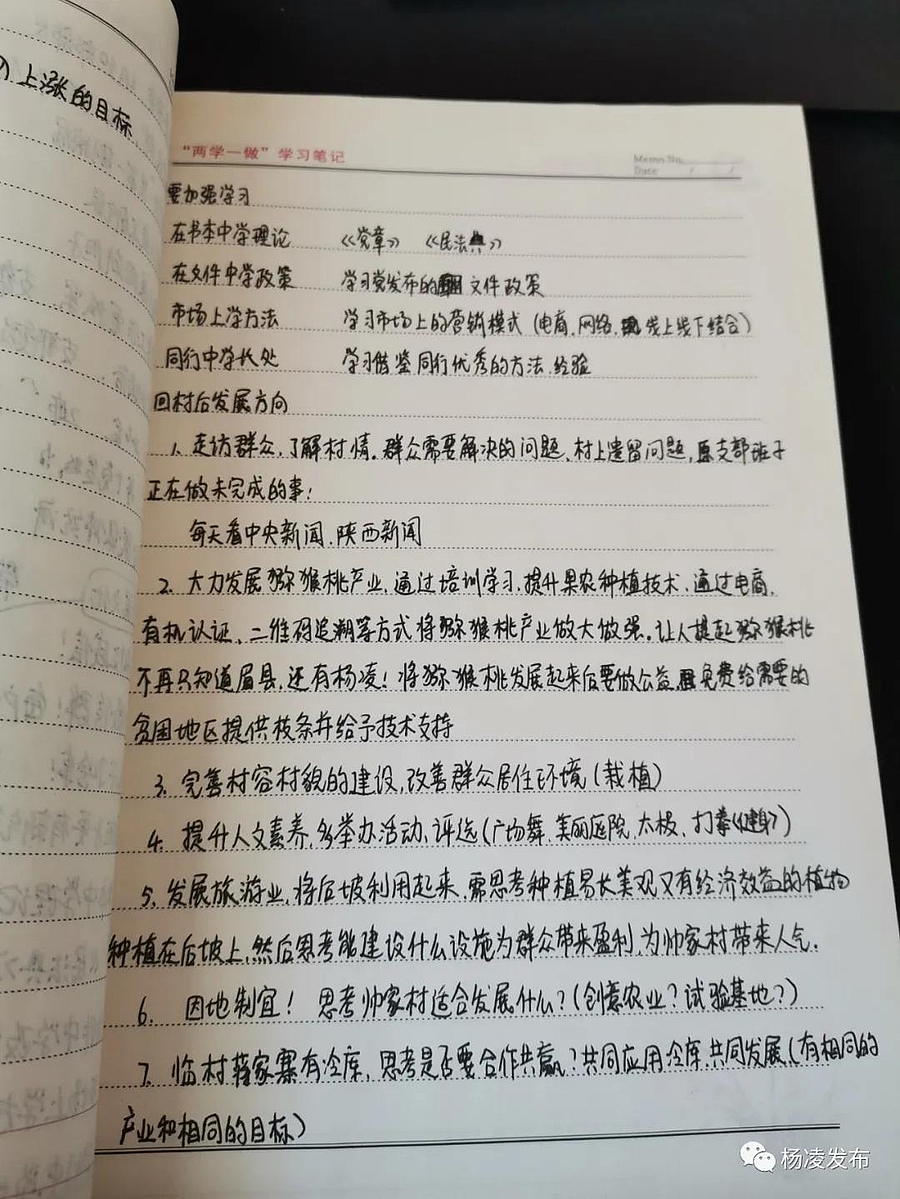 上涨的目标
“两学一做”学习笔记
Memo No.
Date / /
要加强学习
在书本中学理论 《党章》 《民法典》
在文件中学政策 学习党发布的文件政策
市场上学方法 学习市场上的营销模式（电商、网络、线上线下结合）
同行中学长处 学习借鉴同行优秀的方法、经验
回村后发展方向
1、走访群众，了解村情。群众需要解决的问题、村上遗留问题，原支部班子
正在做未完成的事！
每天看中央新闻、陕西新闻
2、大力发展猕猴桃产业，通过培训学习，提升果农种植技术，通过电商，
有机认证、二维码追溯等方式将猕猴桃产业做大做强。让人提起猕猴桃
不再只知道眉县，还有杨凌！将猕猴桃发展起来后要做公益，免费给需要的
贫困地区提供枝条并给予技术支持
3、完善村容村貌的建设，改善群众居住环境（栽植）
4、提升人文素养，多举办活动、评选（广场舞、美丽庭院、太极、打拳《健身》）
5、发展旅游业，将后坡利用起来，需思考种植易长美观又有经济效益的植物
种植在后坡上，然后思考能建设什么设施为群众带来盈利，为帅家村带来人气。
6、因地制宜！ 思考帅家村适合发展什么？（创意农业？试验基地？）
7、临村蒋家寨有冷库，思考是否要合作共赢？共同应用冷库，共同发展（有相同的
产业和相同的目标）
杨凌发布